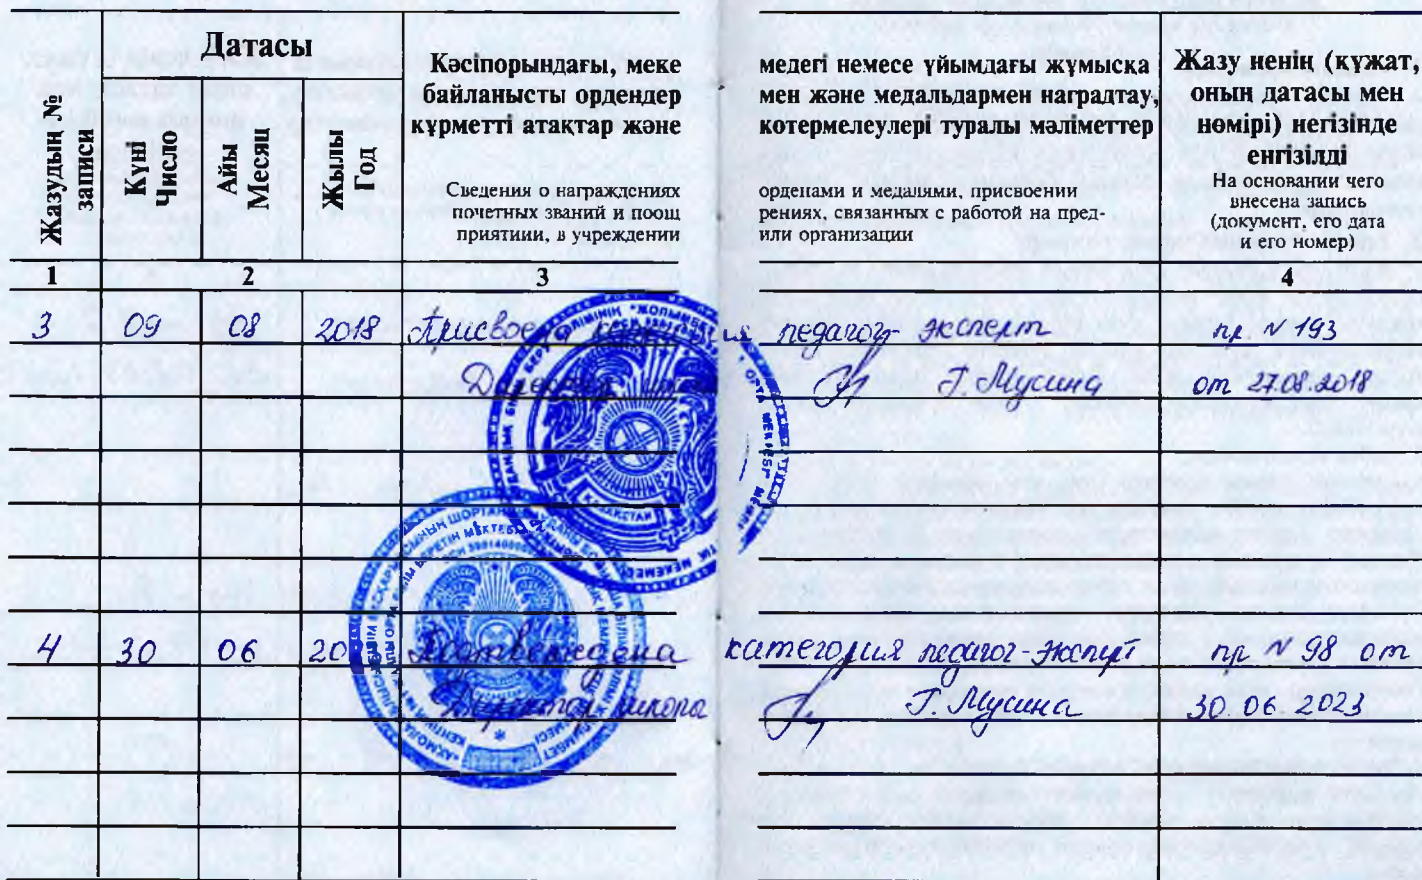 Датасы
Жазудын №
записи
Күні
Число
Айы
Месяц
Жылы
Год
Кәсіпорындағы, меке
байланысты ордендер
құрметті атақтар және
Сведения о награждениях
почетных званий и поощ
приятиии, в учреждении
медегі немесе ұйымдағы жұмысқа
мен және медальдармен наградтау,
котермелеулері туралы мәліметтер
орденами и медалями, присвоении
рениях, связанных с работой на пред-
или организации
Жазу ненің (құжат,
онын датасы мен
нөмірі) негізінде
енгізілді
На основании чего
внесена запись
(документ, его дата
и его номер)
1 2 3 4
3 09 08 2018 Присвоена категория педагог-эксперт пр. N 193
Директор школы Г. Мусина от 27.08.2018
ҚАЗАҚСТАН
4 30 06 20 Подтверждена категория педагог-эксперт пр N 98 от
Директор школы Г. Мусина 30.06.2023